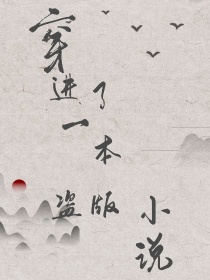 穿进了一本盗版小说